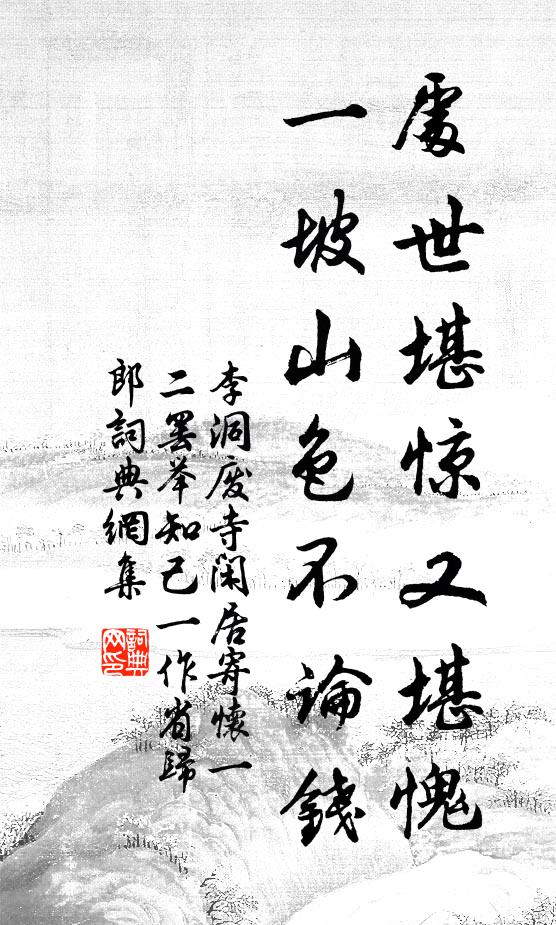 處世堪惊又堪愧
一坡山色不論錢
李洞廢寺閑居寄懷一
二罢举知己一作省歸
郎詞典網集
詞典网印